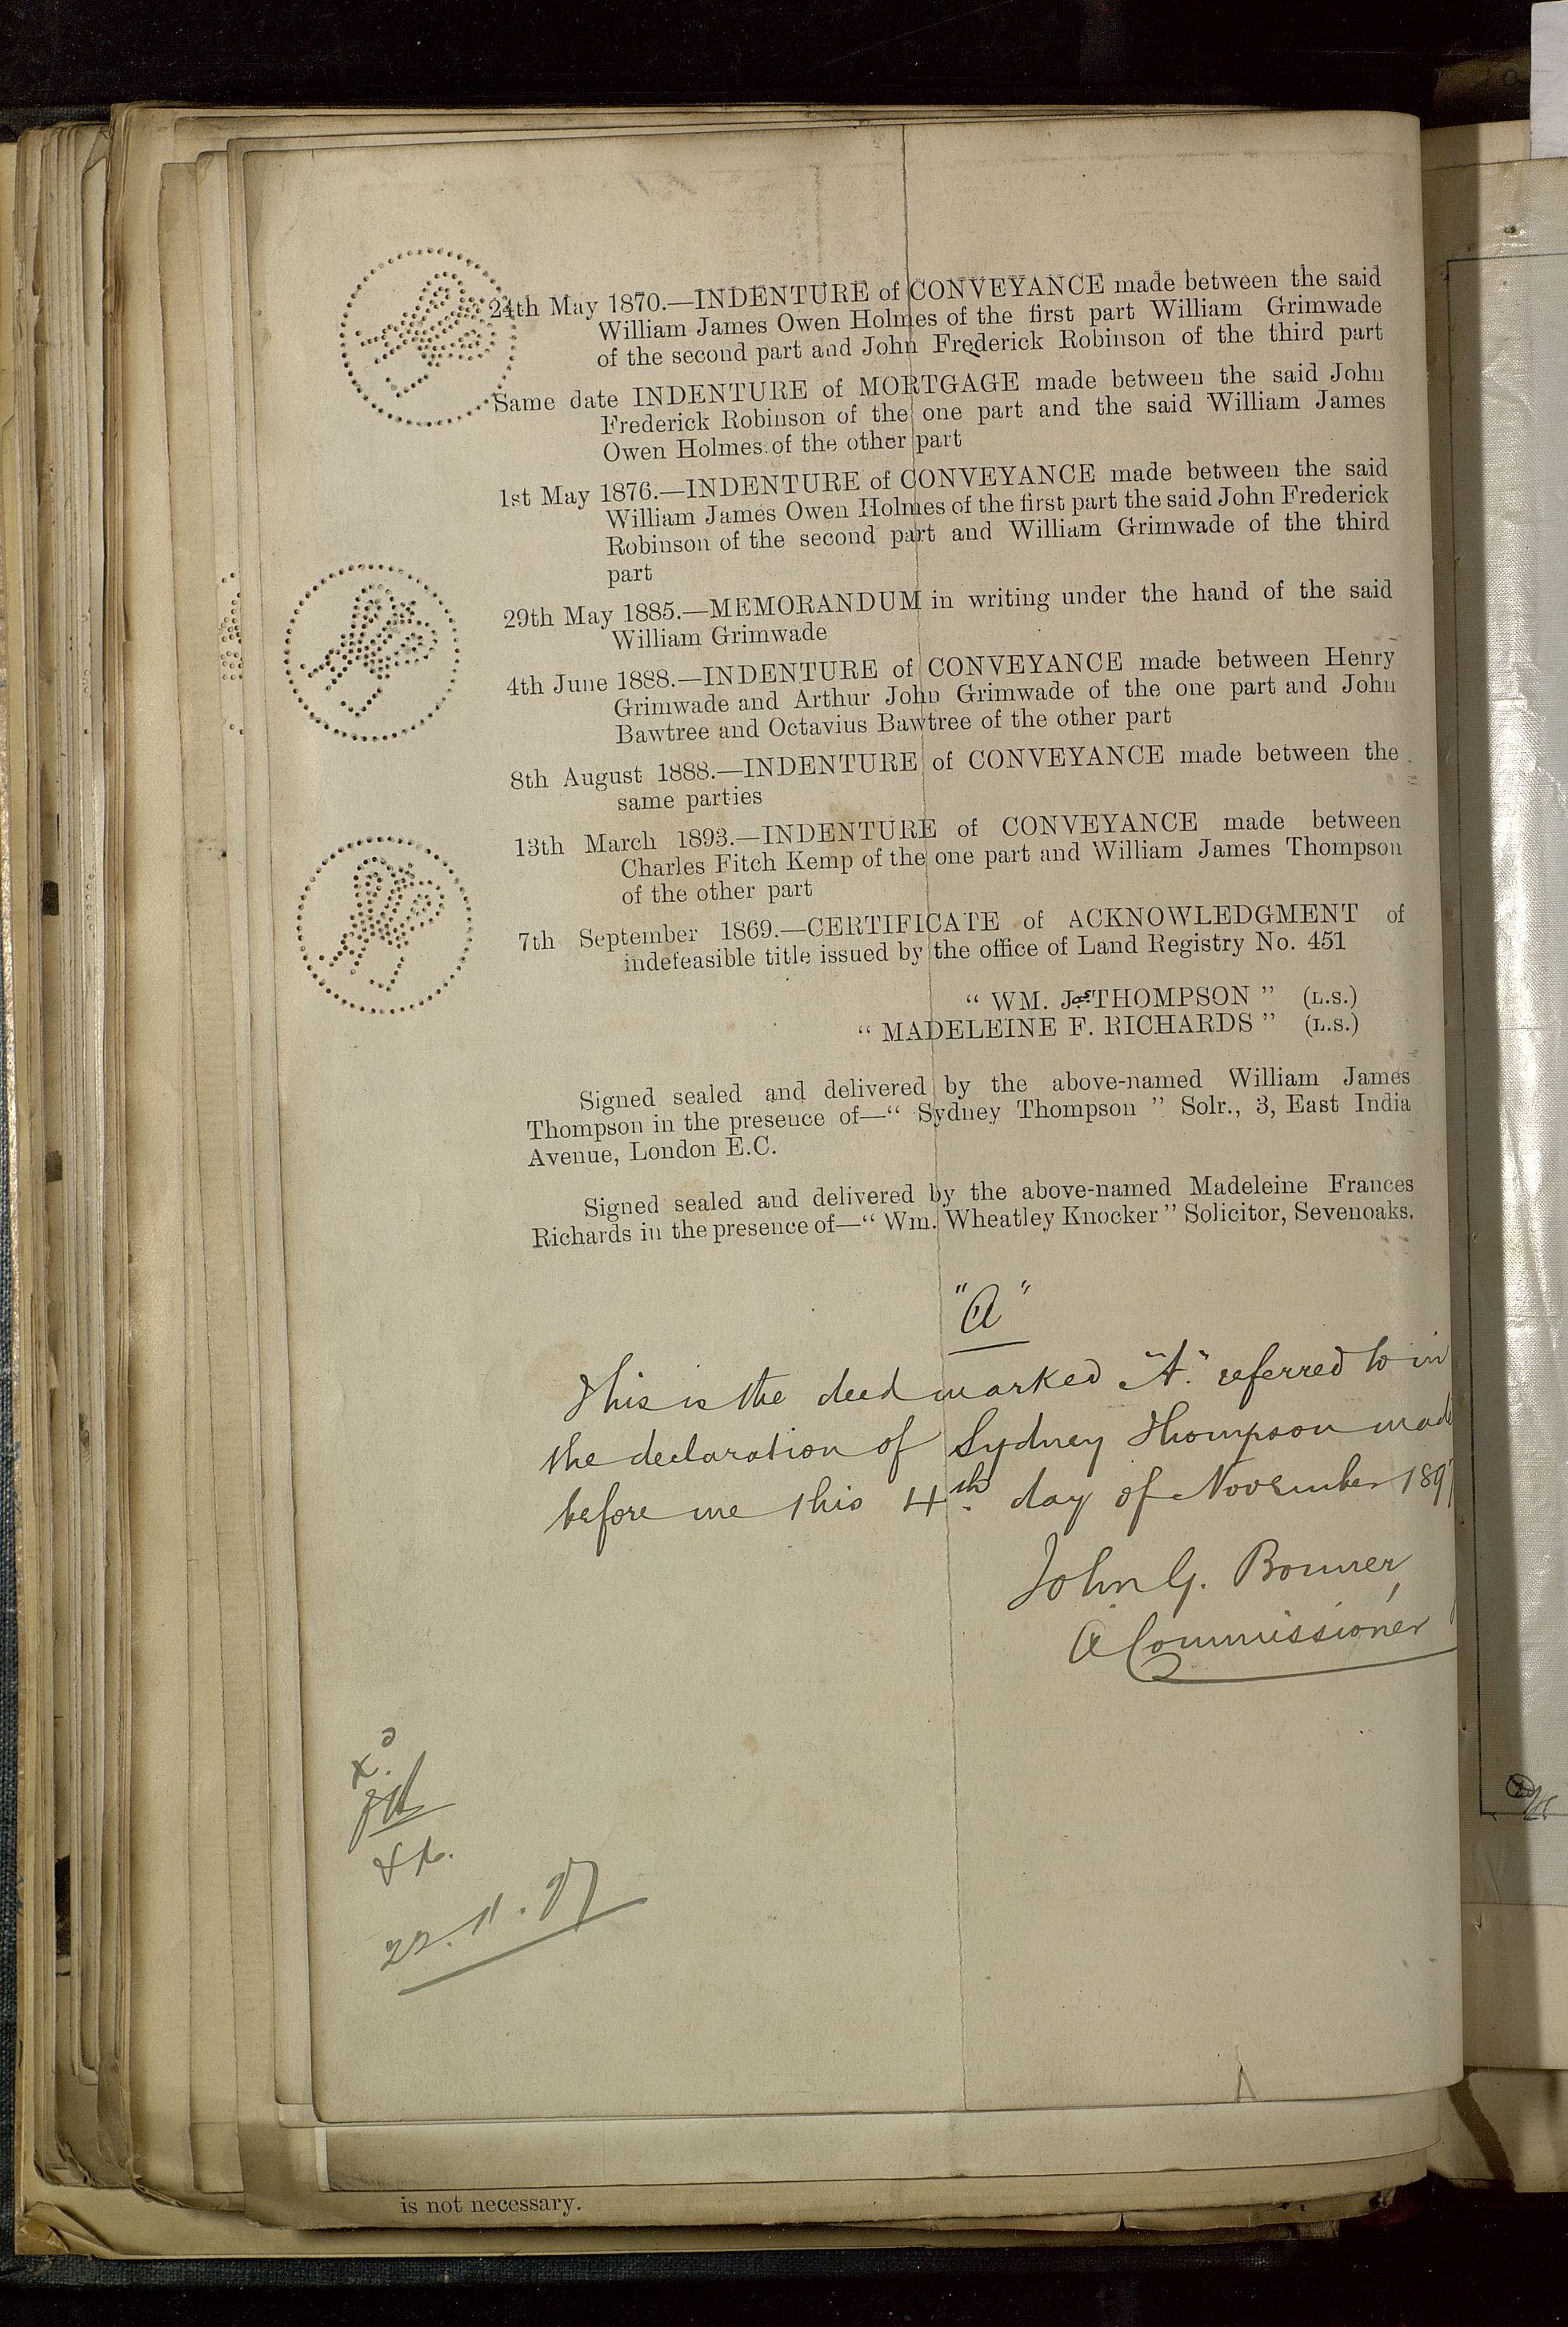 24th May 1870.—INDENTURE of CONVEYANCE made between the said
William James Owen Holmes of the first part William Grimwade
of the second part and John Frederick Robinson of the third part
Same date INDENTURE of MORTGAGE made between the said John
Frederick Robinson of the one part and the said William James
Owen Holmes of the other part
1st May 1876.—INDENTURE of CONVEYANCE made between the said
William James Owen Holmes of the first part the said John Frederick
Robinson of the second part and William Grimwade of the third
part
29th May 1885.—MEMORANDUM in writing under the hand of the said
William Grimwade
4th June 1888.—INDENTURE of CONVEYANCE made between Henry
Grimwade and Arthur John Grimwade of the one part and John
Bawtree and Octavius Bawtree of the other part
8th August 1888.—INDENTURE of CONVEYANCE made between the
same parties
13th March 1893.—INDENTURE of CONVEYANCE made between
Charles Fitch Kemp of the one part and William James Thompson
of the other part
7th September 1869.—CERTIFICATE of ACKNOWLEDGMENT of
indefeasible title issued by the office of Land Registry No. 451
“ WM. Jas THOMPSON ” (L.S.)
“ MADELEINE F. RICHARDS ” (L.S.)
Signed sealed and delivered by the above-named William James
Thompson in the presence of—“ Sydney Thompson ” Solr., 3, East India
Avenue, London E.C.
Signed sealed and delivered by the above-named Madeleine Frances
Richards in the presence of—“ Wm. Wheatley Knocker ” Solicitor, Sevenoaks.
"A"
This is the deed marked "A." referred to in
the declaration of Sydney Thompson
before me this 4th day of November 1897
John G. Bonner
A Commissioner
22.11.97
is not necessary.